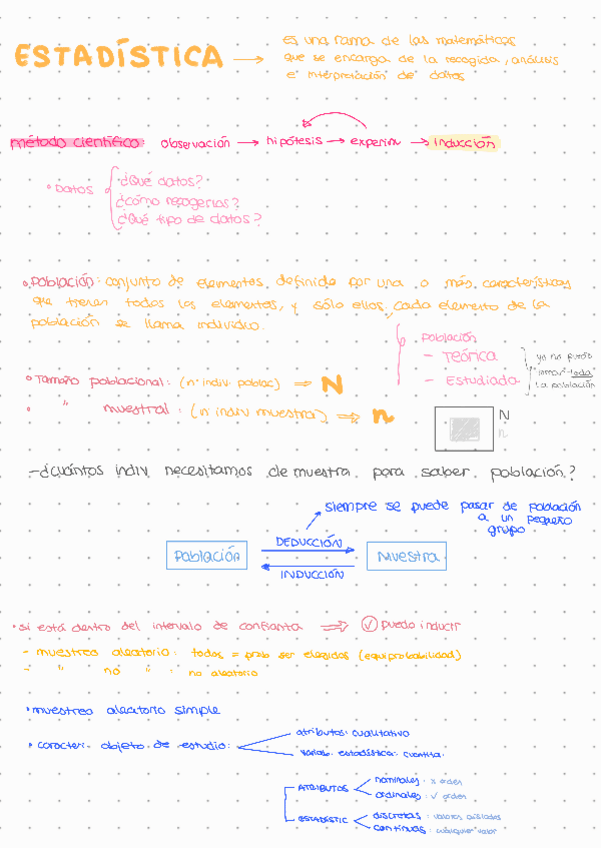 ESTADÍSTICA → es una rama de las matemáticas
que se encarga de la recogida, análisis
e interpretación de datos
método científico: observación → hipótesis → experim → inducción
• Datos
¿Qué datos?
¿cómo recogerlos?
¿Qué tipo de datos?
• población: conjunto de elementos, definido por una o más características
que tienen todos los elementos, y sólo ellos, cada elemento de la
población se llama individuo.
población
- Teórica
- Estudiada
ya no puedo
tomar toda
la población
• Tamaño poblacional: (nº indiv. poblac) ⇒ N
• " muestral: (nº indiv muestra) ⇒ n
N
n
- ¿cuántos indiv. necesitamos de muestra para saber población?
siempre se puede pasar de población
a un pequeño
grupo
Población
DEDUCCIÓN
INDUCCIÓN
Muestra
• si está dentro del intervalo de confianza ⇒ ✓ puedo inducir
- muestreo aleatorio: todos = prob ser elegidos (equiprobabilidad)
- " no " : no aleatorio
• muestreo aleatorio simple
• caracter. objeto de estudio:
atributos: cualitativo
variab. estadística: cuantita.
ATRIBUTOS
nominales: x orden
ordinales: ✓ orden
ESTADÍSTIC
discretas: valores aislados
continuas: cualquier valor